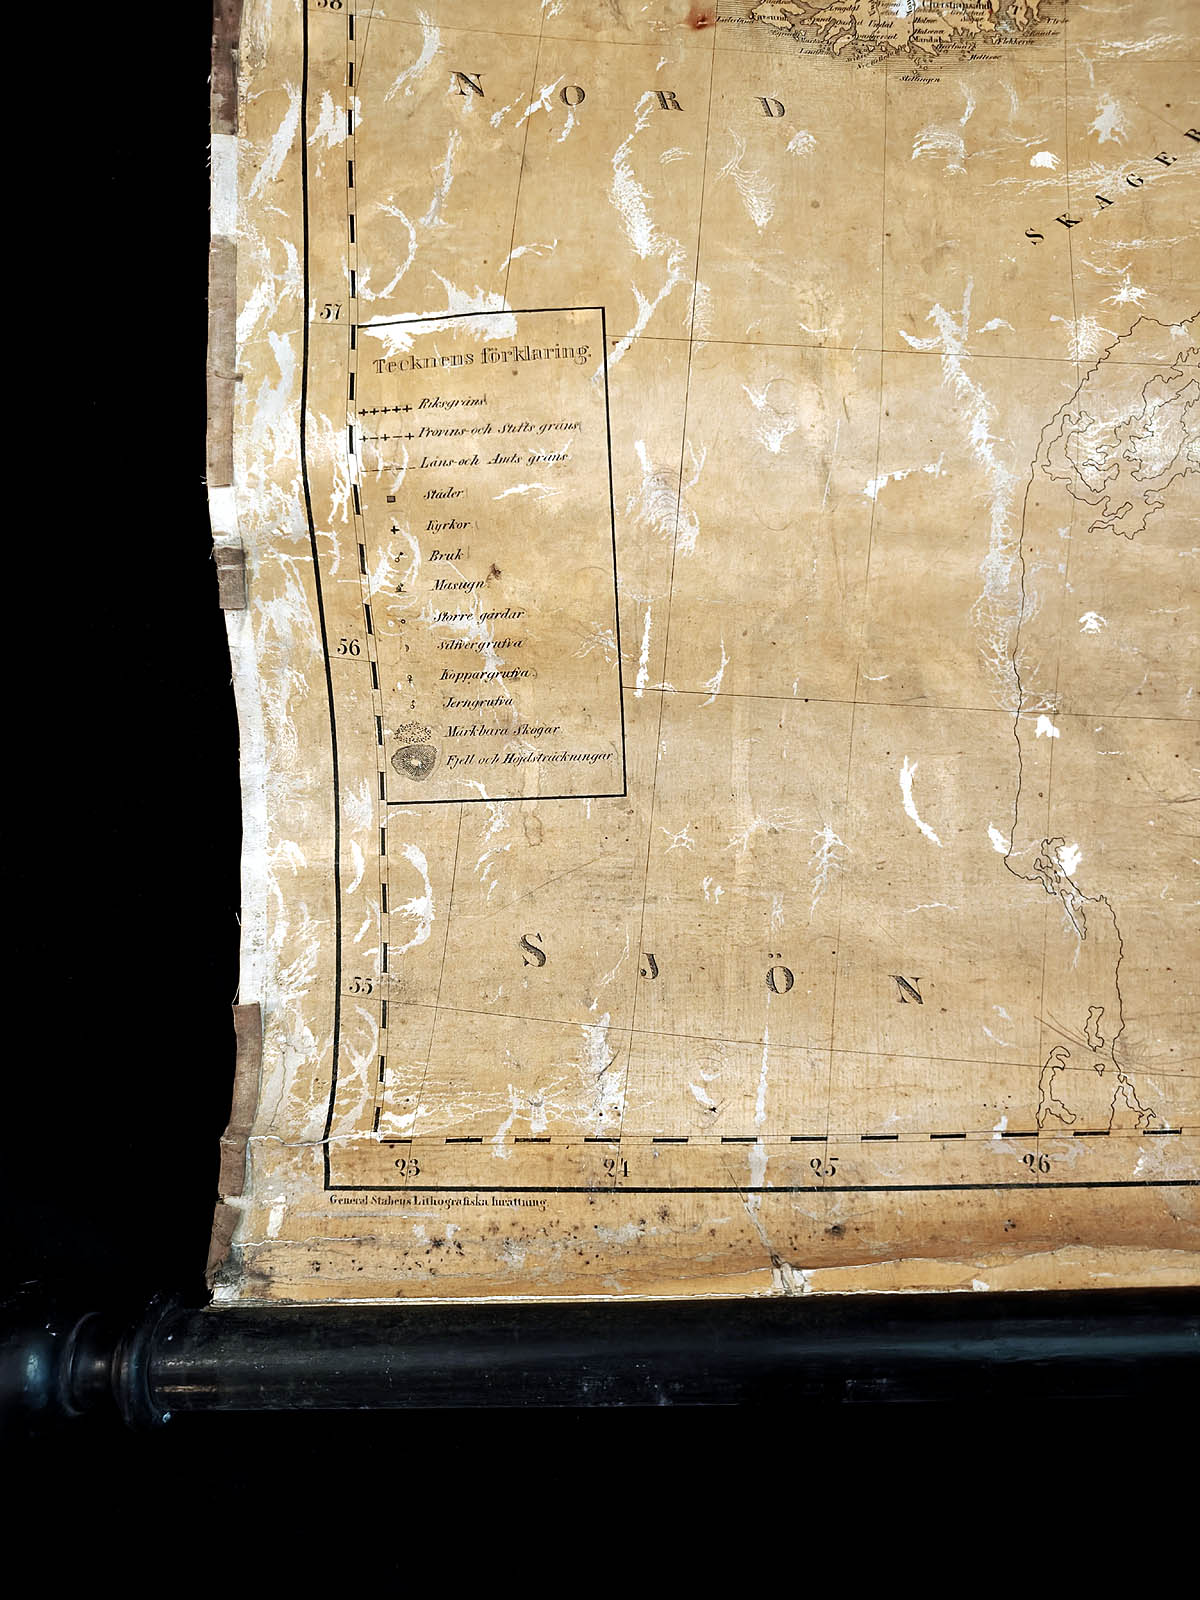 58
Christiansand
Mandal
N O R D
SKAGER
57
Tecknens förklaring.
Riksgräns
Provins-och Stifts gräns
Läns-och Amts gräns
Städer
Kyrkor
Bruk
Masugn
Större gårdar
Silfvergrufva
Koppargrufva
Jerngrufva
Märkbara Skogar
Fjell och Höjdsträckningar
56
S J Ö N
55
23 24 25 26
General Stabens Lithografiska Inrättning.